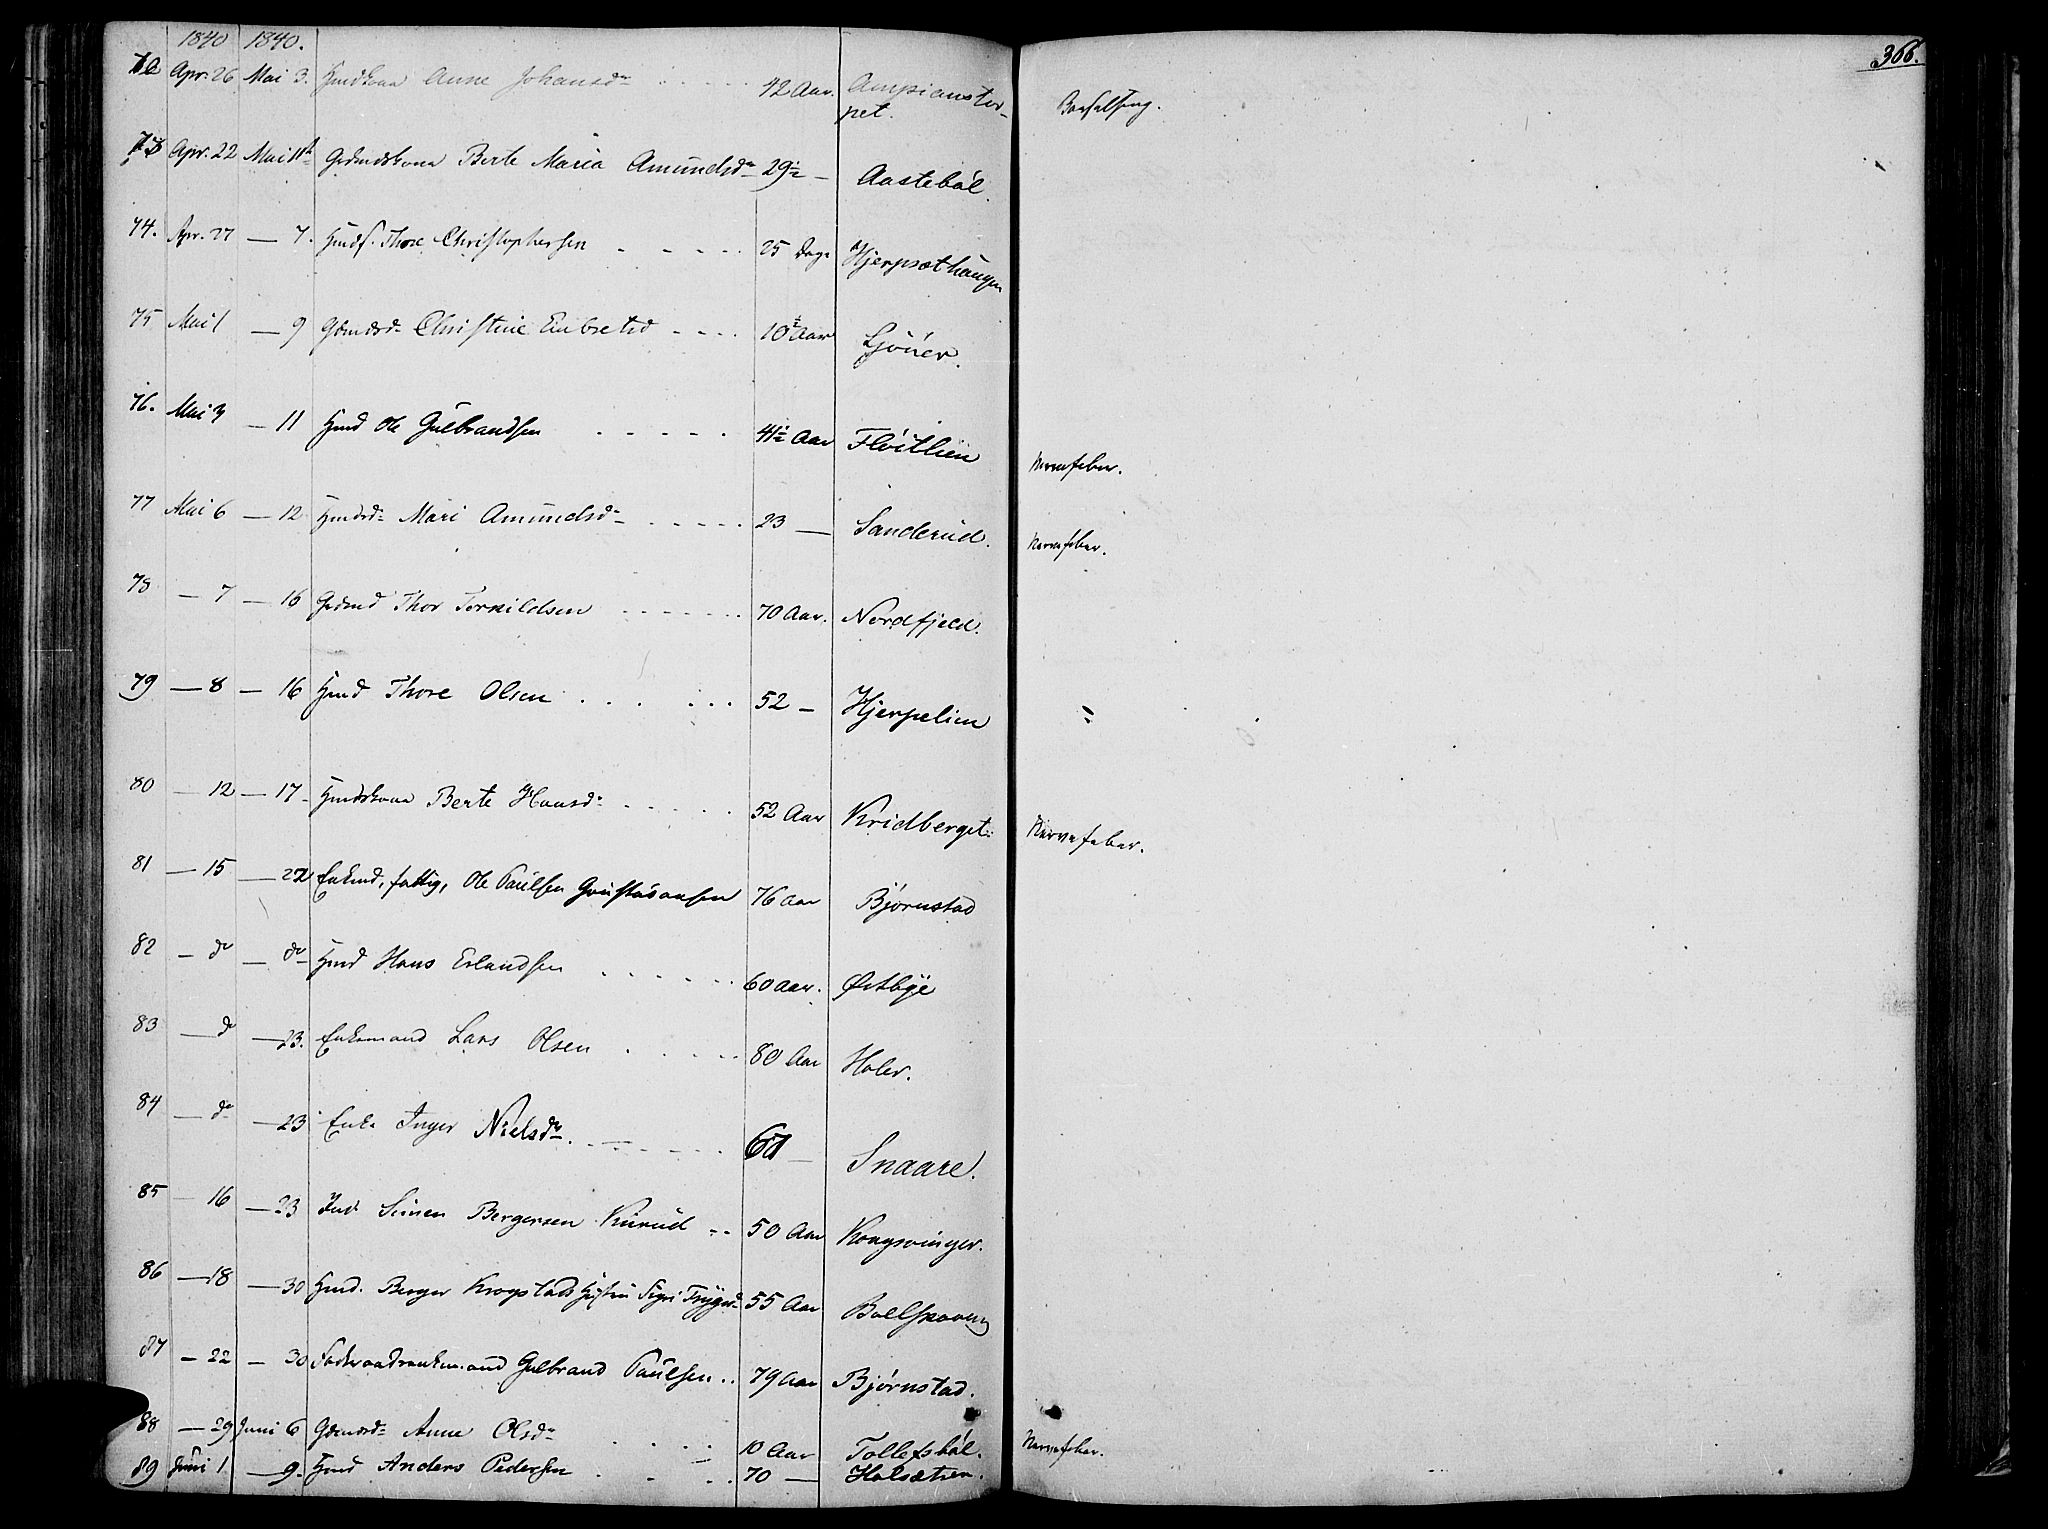 1840 1840.
366.
Apr. 26 Mai 3. Hmdskona Anne Johansdr 42 Aar. Ampianstor-
pet. Barselseng.
73 Apr. 22 Mai Gdmdskona Berte Maria Amundsdr 29½ — Aastebøl.
74. Apr. 27 — 7. Hmdf. Thore Christophersen 25 Dage Hjerpsæthaugen
75 Mai 1 — 9 Gdmdsdr Christine Embretsd 10½ Aar Ljöner.
76. Mai 3 — 11 Hmd Ole Gulbrandsen 41½ Aar Fløitlien Nervefeber.
77 Mai 6 — 12 Hmdsdr Mari Amundsdr 23 — Sanderud. Nervefeber.
78 — 7 — 16 Gdmd Thor Torkildsen 70 Aar. Nordfjeld.
79 — 8 — 16 Hmd Thore Olsen 52 — Hjerpelien
80 — 12 — 17 Hmdskona Berte Hansdr 52 Aar Kridberget Nervefeber.
81 — 15 — 22 Enkmd, fattig, Ole Paulsen Gustadansen 76 Aar Bjørnstad
82 — do — do Hmd Hans Erlandsen 60 Aar. Østbye
83 — do — 23. Enkemand Lars Olsen 80 Aar Holer.
84 — do — 23 Enke Inger Nielsdr. 61 — Snaare.
85 — 16 — 23 Ind Simen Bergersen Kurud 50 Aar Kongsvinger.
86 — 18 — 30 Hmd. Berger Krogstads Hustru Sigri Trygsdr 55 Aar Ballskoven
87 — 22 — 30 Føderaadsenkemand Gulbrand Paulsen 79 Aar Bjørnstad.
88 — 29 Juni 6 Gdmdsdr Anne Olsdr 10 Aar Tollefsbøl. Nervefeber.
89 Juni 1 — 9. Hmd Anders Pedersen 70 — Holsætren.